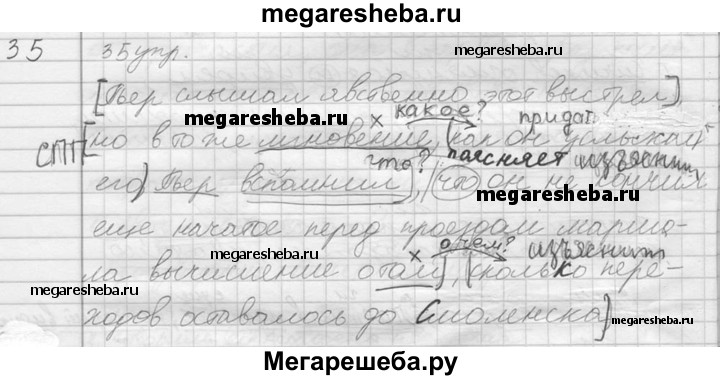 megaresheba.ru
35 35 упр.
[Пьер слышал явственно этот выстрел]
какое? придат.
СПП [но в то же мгновение, (как он услыхал
что? поясняет изъяснит
его) Пьер вспомнил], (что он не кончил
еще начатое перед проездом марша-
о чем? изъяснит
ла вычисление о том), (сколько пере-
ходов оставалось до Смоленска)
megaresheba.ru
megaresheba.ru
megaresheba.ru
megaresheba.ru
megaresheba.ru
megaresheba.ru
megaresheba.ru
Мегарешеба.ру